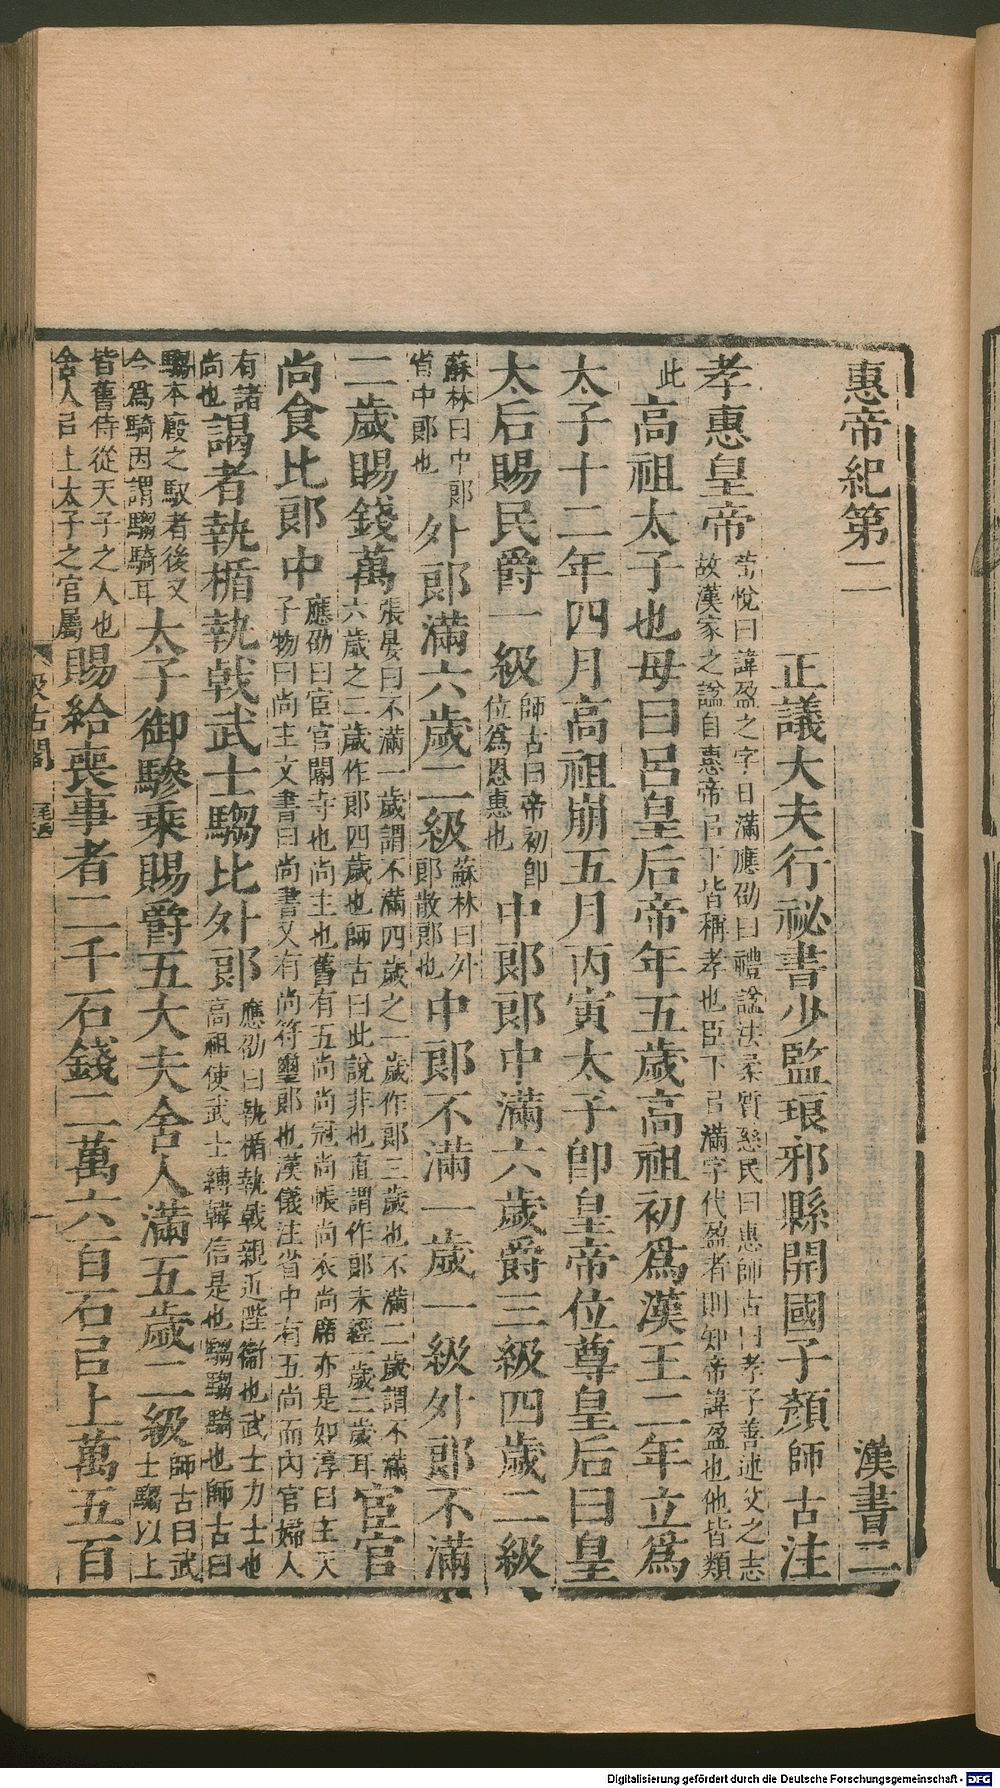 惠帝紀第二　漢書二
正議大夫行祕書少監琅邪縣開國子顏師古注
孝惠皇帝
荀悅曰諱盈之字曰滿應劭曰禮諡法柔質慈民曰惠師古曰孝子善述父之志
故漢家之諡自惠帝㠯下皆稱孝也臣下㠯滿字代盈者則知帝諱盈也他皆類
此
高祖太子也母曰呂皇后帝年五歲高祖初爲漢王二年立爲
太子十二年四月高祖崩五月丙寅太子卽皇帝位尊皇后曰皇
太后賜民爵一級
師古曰帝初卽
位爲恩惠也
中郎郎中滿六歲爵三級四歲二級
蘇林曰中郎
省中郎也
外郎滿六歲二級
蘇林曰外
郎散郎也
中郎不滿一歲一級外郎不滿
二歲賜錢萬
張晏曰不滿一歲謂不滿四歲之一歲作郎三歲也不滿二歲謂不滿
六歲之二歲作郎四歲也師古曰此說非也直謂作郎未經一歲二歲耳
宦官
尚食比郎中
應劭曰宦官閹寺也尚主也舊有五尚尚冠尚帳尚衣尚席亦是如淳曰主天
子物曰尚主文書曰尚書又有尚符璽郎也漢儀注省中有五尚而內官婦人
有諸
尚也
謁者執楯執戟武士騶比外郎
應劭曰執楯執戟親近陛衞也武士力士也
高祖使武士縛韓信是也騶騶騎也師古曰
騶本廄之馭者後又
今爲騎因謂騶騎耳
太子御驂乘賜爵五大夫舍人滿五歲二級
師古曰武
士騶以上
皆舊侍從天子之人也
舍人㠯上太子之官屬
賜給喪事者二千石錢二萬六百石㠯上萬五百
汲古閣
Digitalisierung gefördert durch die Deutsche Forschungsgemeinschaft - DFG